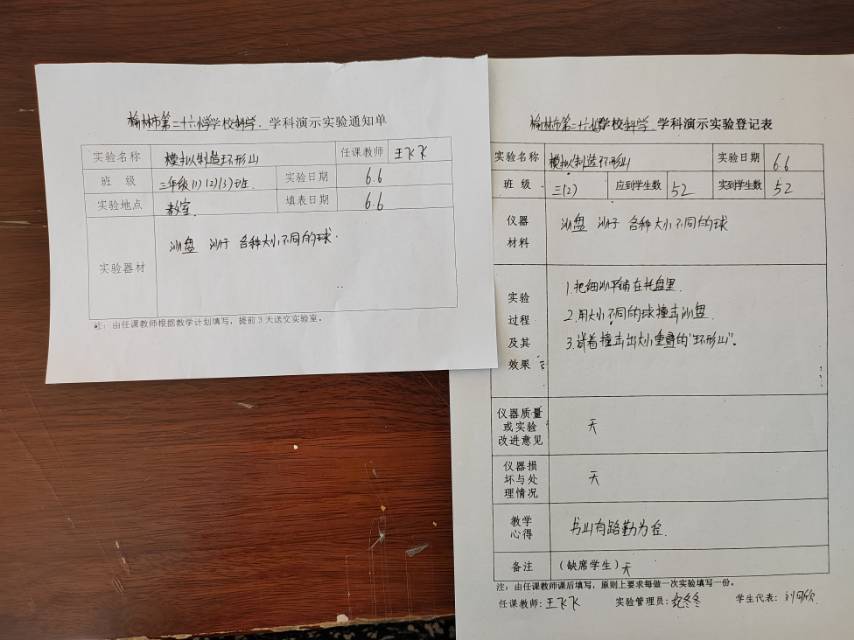 榆林市第二十六小学学校科学 学科演示实验通知单
实验名称 模拟制造环形山 任课教师 王飞飞
班 级 三年级(1)(2)(3)班 实验日期 6.6
实验地点 教室 填表日期 6.6
实验器材 沙盘 沙子 各种大小不同的球
注:由任课教师根据教学计划填写,提前3天送交实验室。
榆林市第二十六小学学校科学 学科演示实验登记表
实验名称 模拟制造环形山 实验日期 6.6
班 级 三(2) 应到学生数 52 实到学生数 52
仪器
材料
沙盘 沙子 各种大小不同的球
实验
过程
及其
效果
1.把细沙平铺在托盘里.
2.用大小不同的球撞击沙盘.
3.试着撞击出大小重叠的"环形山"。
仪器质量
或实验
改进意见
无
仪器损
坏与处
理情况
无
教学
心得
书山有路勤为径.
备注 (缺席学生) 无
注:由任课教师课后填写,原则上要求每做一次实验填写一份。
任课教师:王飞飞 实验管理员:纪冬冬 学生代表: